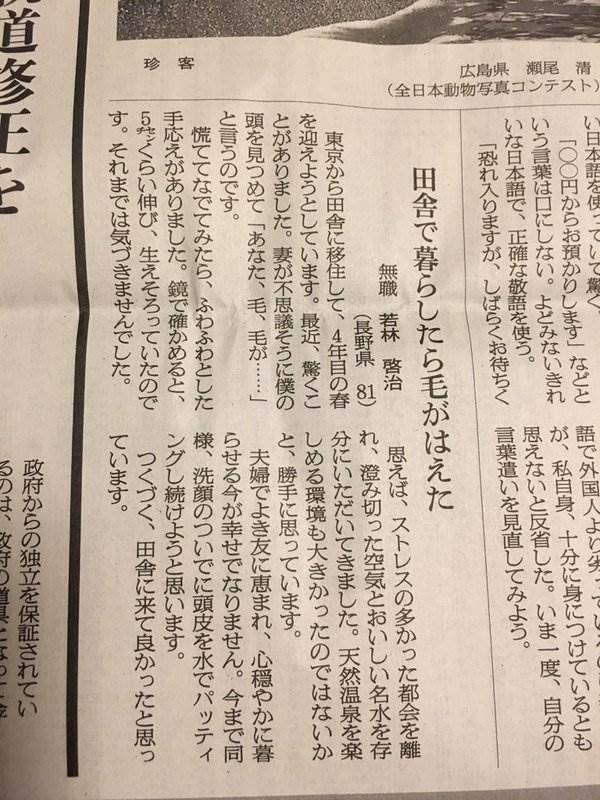 珍客
広島県 瀬尾 清
(全日本動物写真コンテスト)
い日本語を使っていて驚く。
「〇〇円からお預かりします」などと
いう言葉は口にしない。よどみないきれ
いな日本語で、正確な敬語を使う。
「恐れ入りますが、しばらくお待ちく
語で外国人より劣っている
が、私自身、十分に身につけているとも
思えないと反省した。いま一度、自分の
言葉遣いを見直してみよう。
田舎で暮らしたら毛がはえた
無職 若林 啓治
(長野県 81)
東京から田舎に移住して、4年目の春
を迎えようとしています。最近、驚くこ
とがありました。妻が不思議そうに僕の
頭を見つめて「あなた、毛、毛が……」
と言うのです。
慌ててなでてみたら、ふわふわとした
手応えがありました。鏡で確かめると、
5㌢くらい伸び、生えそろっていたので
す。それまでは気づきませんでした。
思えば、ストレスの多かった都会を離
れ、澄み切った空気とおいしい名水を存
分にいただいてきました。天然温泉を楽
しめる環境も大きかったのではないか
と、勝手に思っています。
夫婦でよき友に恵まれ、心穏やかに暮
らせる今が幸せでなりません。今まで同
様、洗顔のついでに頭皮を水でパッティ
ングし続けようと思います。
つくづく、田舎に来て良かったと思っ
ています。
道修正を
政府からの独立を保証されてい
るのは、政府の道具となって